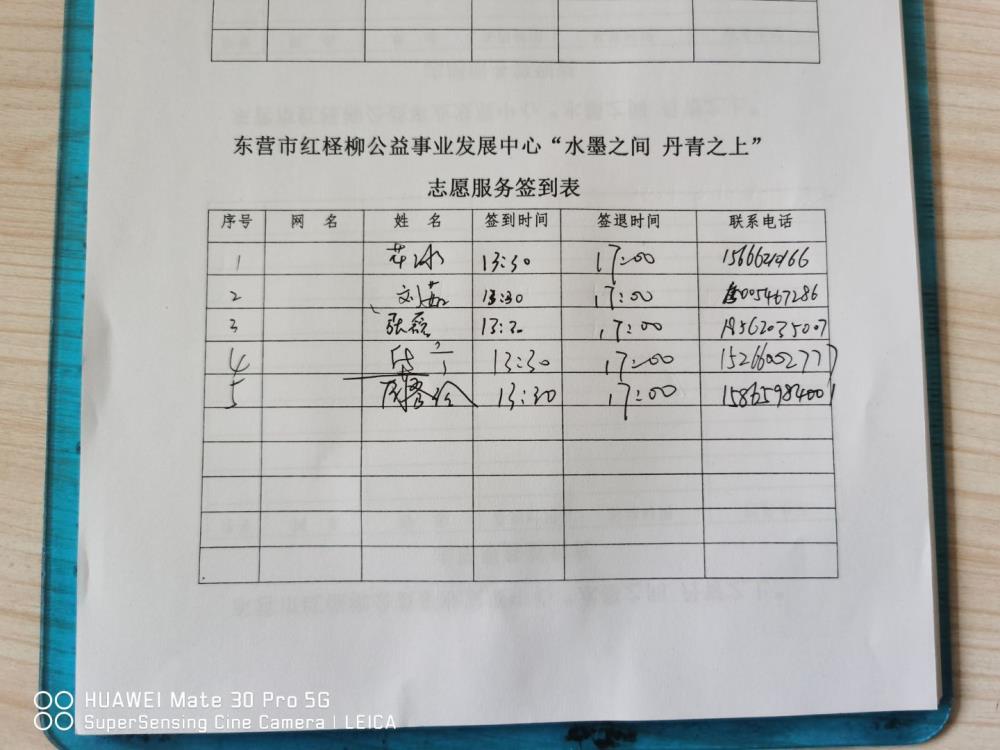 东营市红柽柳公益事业发展中心“水墨之间 丹青之上”
志愿服务签到表
序号 网 名 姓 名 签到时间 签退时间 联系电话
1 13:30 17:00
2 刘茹 13:30 17:00
3 张磊 13:30 17:00 19562035007
4 13:30 17:00 15266002777
5 13:30 17:00 15865984001
HUAWEI Mate 30 Pro 5G
SuperSensing Cine Camera | LEICA